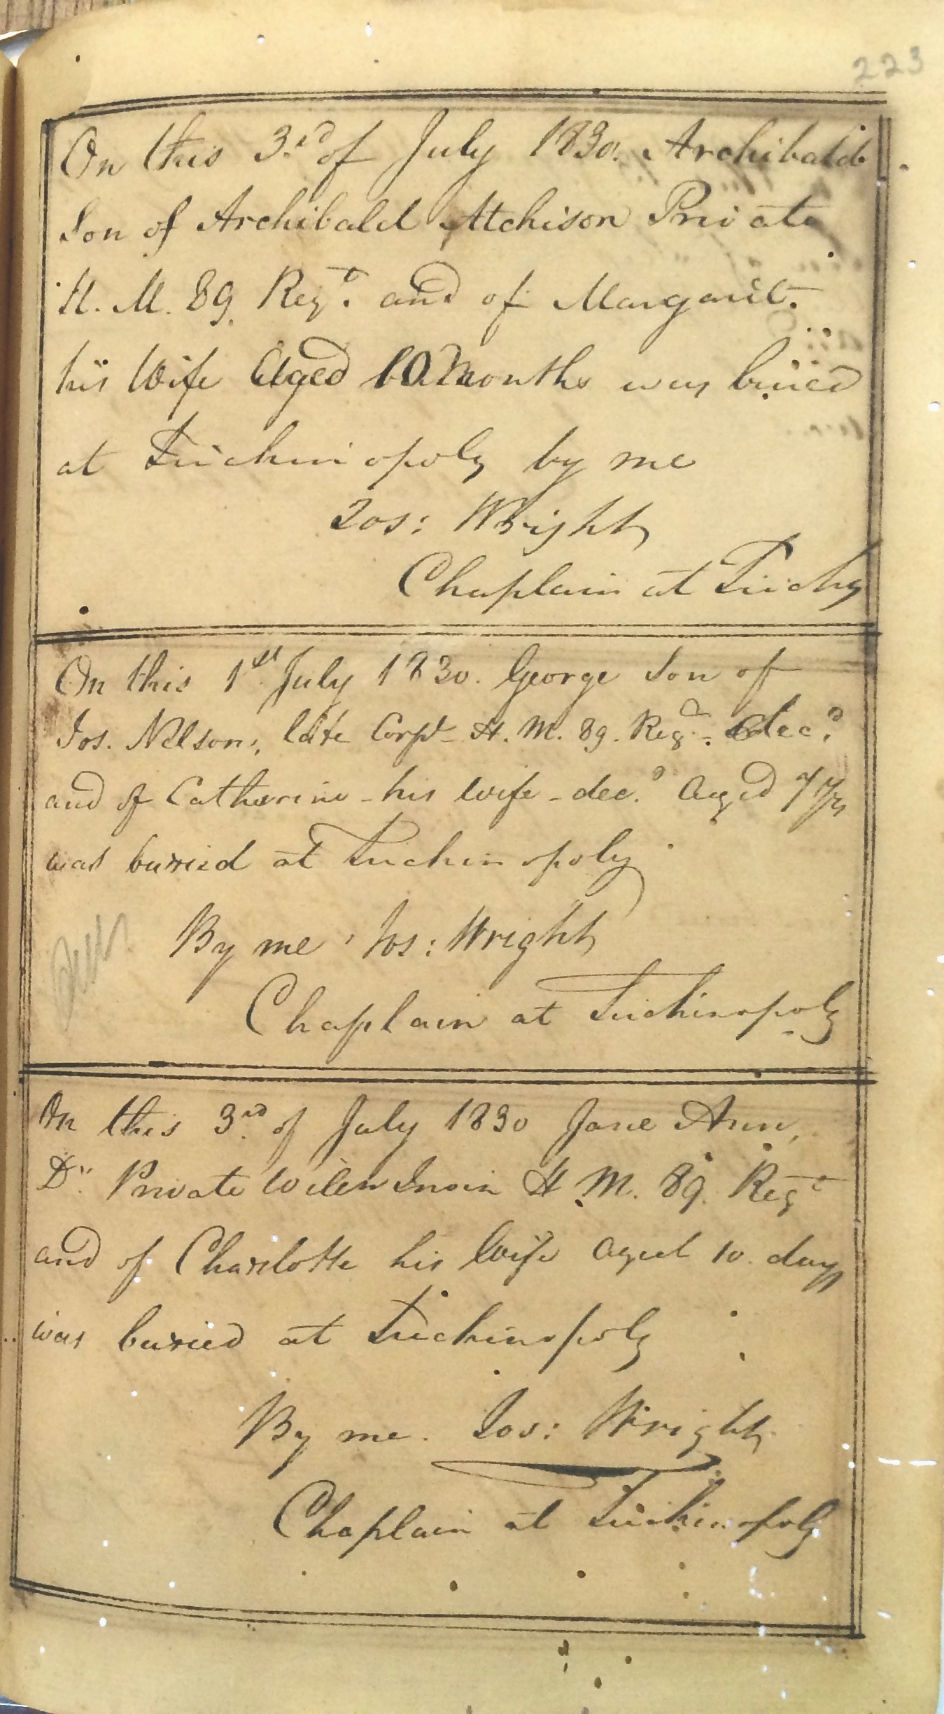 223
On this 3.rd of July 1830. Archibald
Son of Archibald Atchison Private
H. M. 89. Regt. and of Margaret.
his Wife Aged 10 Months was buried
at Trichinopoly by me
Jos: Wright
Chaplain at Trichy
On this 1st. July 1830. George Son of
Jos. Nelson, late Corpl- H. M. 89. Reg. decd.
and of Catherine - his wife - decd. Aged 7 Yrs
was buried at Trichinopoly
By me, Jos: Wright
Chaplain at Trichinopoly
On this 3.rd of July 1830 Jane Ann,
Dr. Private H. M. 89. Regt
and of Charlotte his Wife aged 10. days
was buried at Trichinopoly
By me. Jos: Wright
Chaplain at Trichinopoly